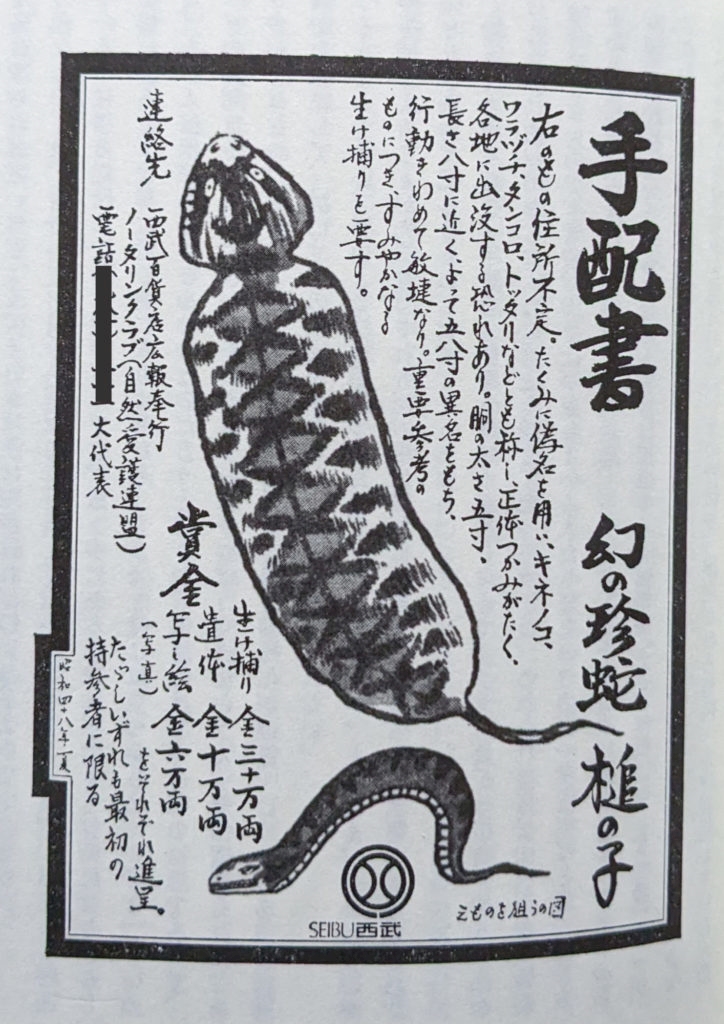 手配書　幻の珍蛇　槌の子
右のもの住所不定。たくみに偽名を用い、キネノコ、
ワラヅチ、タンコロ、トッタリなどとも称し、正体つかみがたく、
各地に出没する恐れあり。胴の太さ五寸、
長さ八寸に近くよって五八寸の異名をもち、
行動きわめて敏捷なり。重要参考の
ものにつき、すみやかなる
生け捕りを要す。
連絡先
西武百貨店広報奉行
ノータリンクラブ(自然愛護連盟)
電話 大代表
賞金
生け捕り　金三十万両
遺体　金十万両
写し絵　金六万両
(写真)
をそれぞれ進呈。
たゞしいずれも最初の
持参者に限る
昭和四十八年夏
えものを狙うの図
SEIBU西武